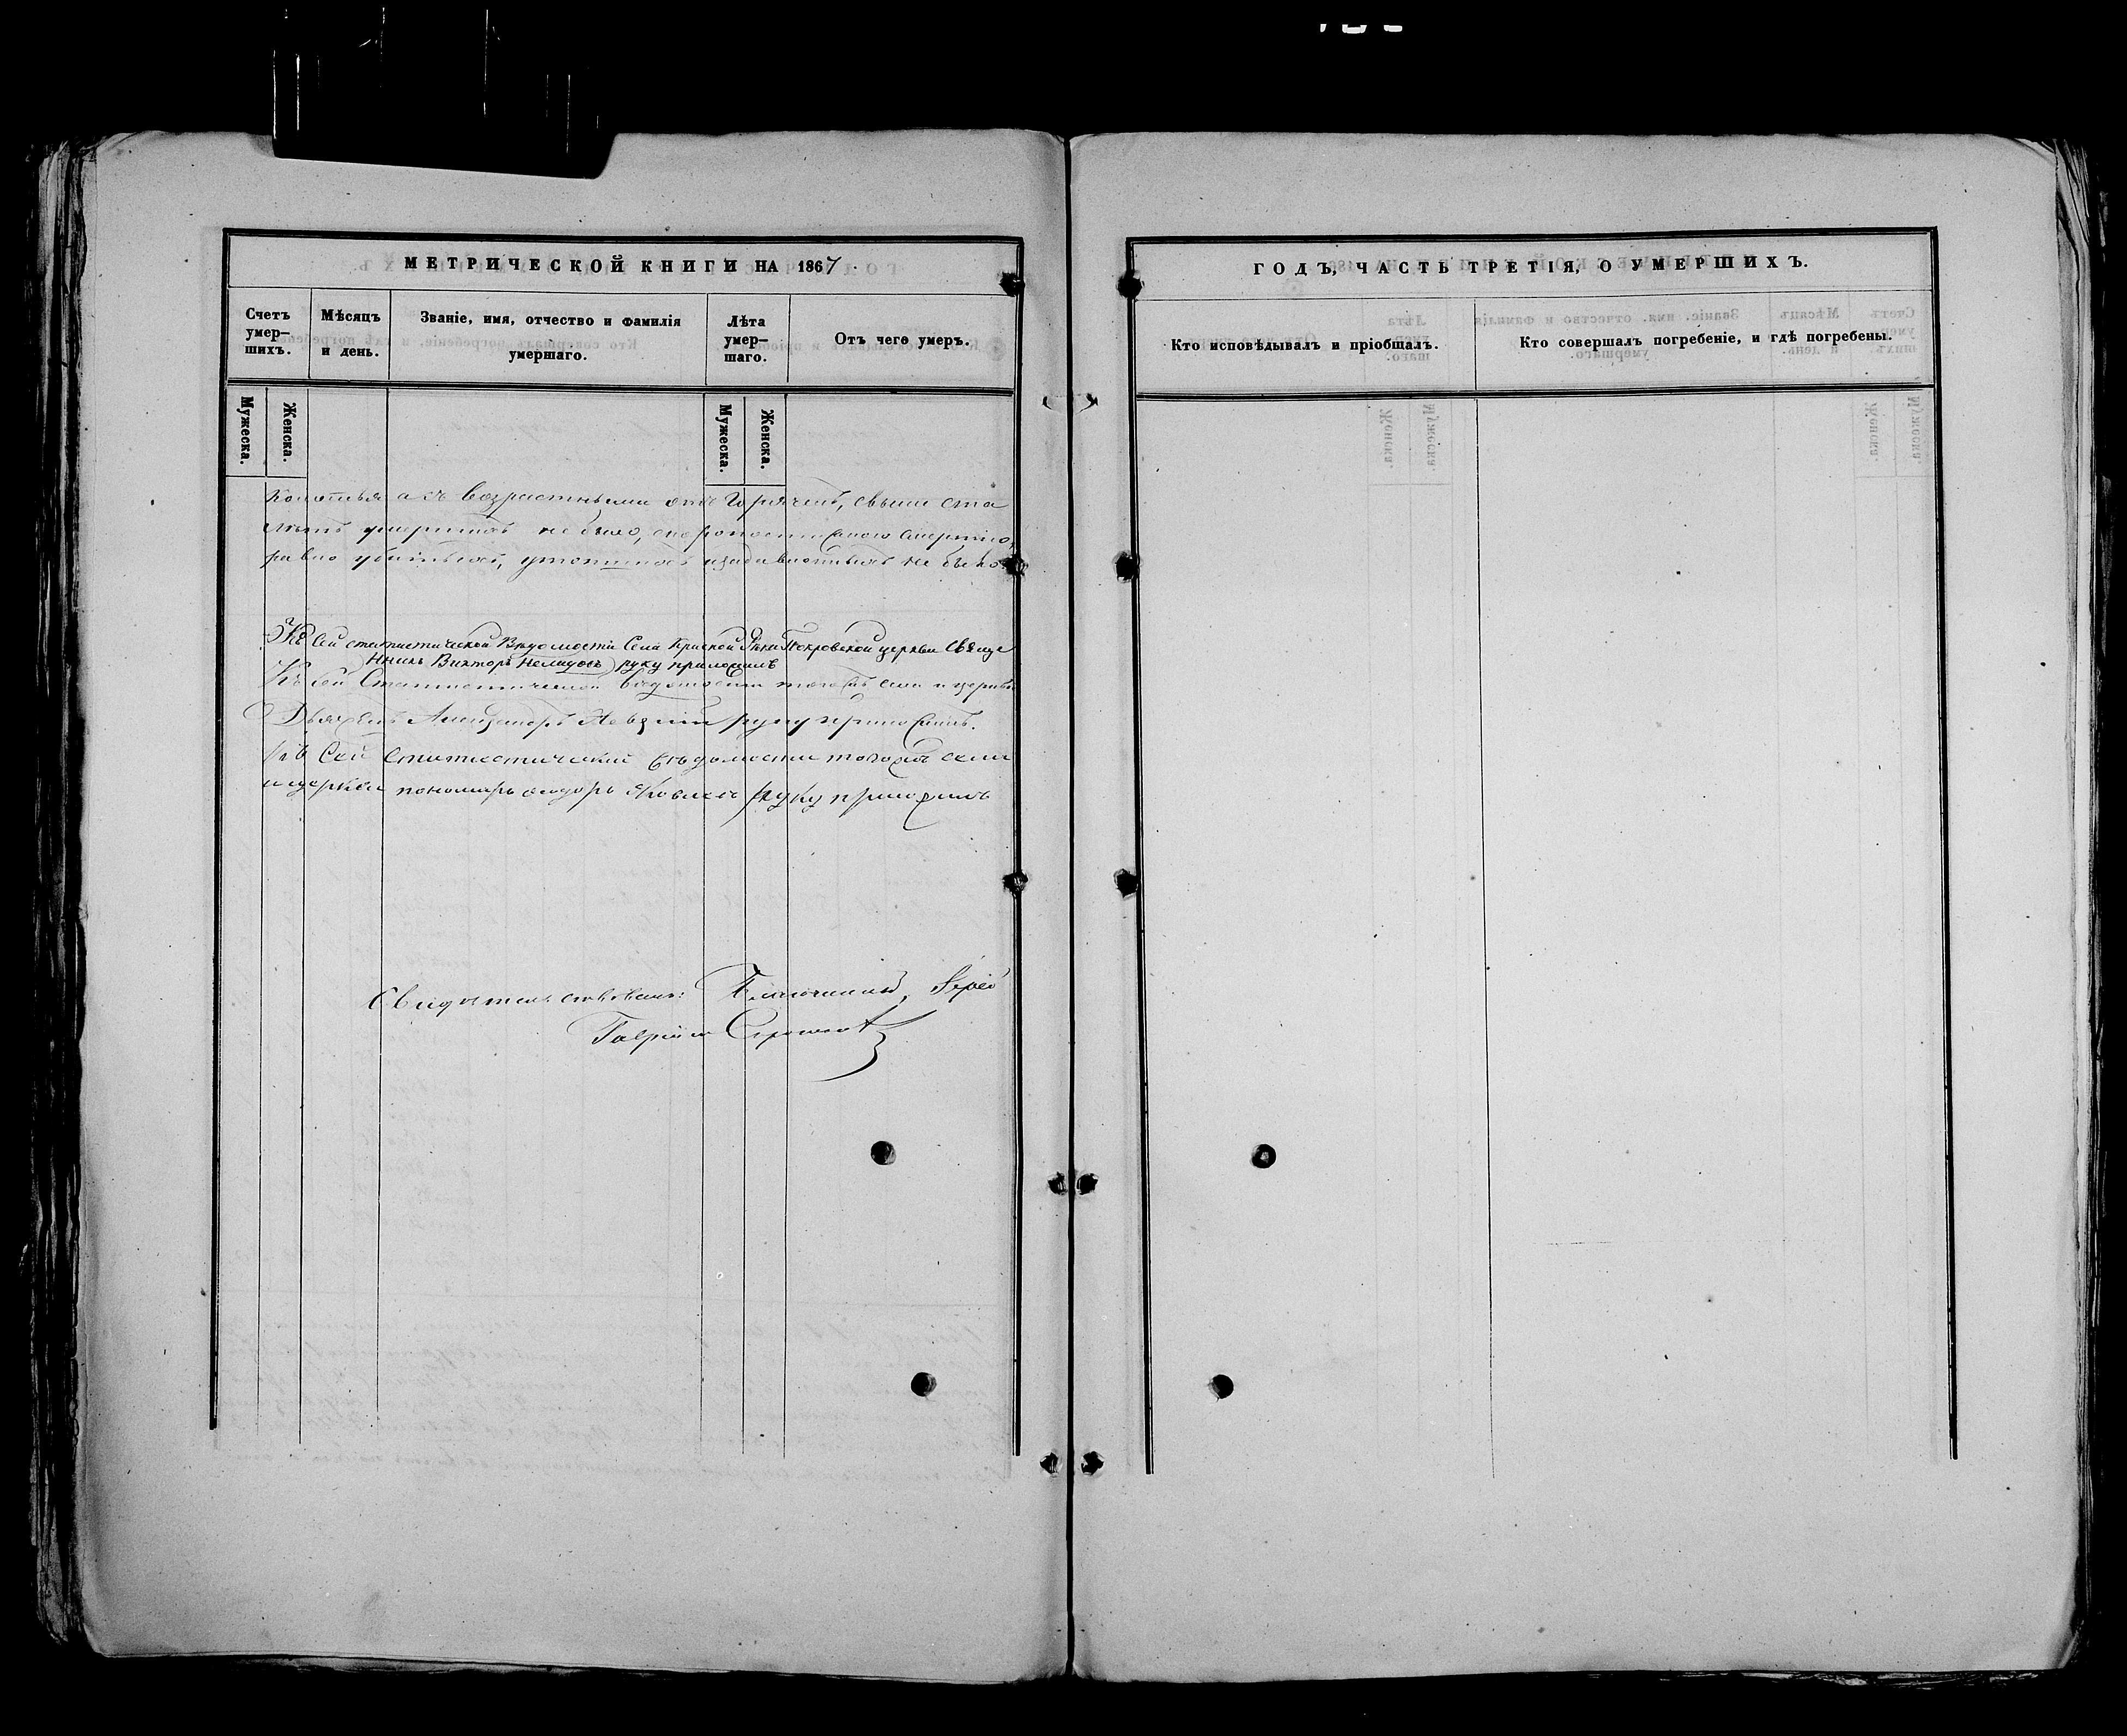 МЕТРИЧЕСКОЙ КНИГИ НА 1867.
Счетъ умер– шихъ.
Мѣсяцъ и день.
Званіе, имя, отчество и фамилія умершаго.
Лѣта умер– шаго.
Отъ чего умеръ.
Мужеска.
Женска.
Мужеска.
Женска.
а съ возрастными отъ Горячекъ, свыше ста
лѣтъ умершихъ не было, скоропостижною смертію,
равно убитыхъ, утопшихъ и задавившихся не было.
Къ сей статистической Вѣдомости Села Красной Рѣки Покровской церкви Свяще
нникъ Викторъ руку приложилъ
Къ сей Статистической вѣдомости тогожъ села и церкви
Дьячекъ Александръ руку приложилъ.
Къ Сей Статистической вѣдомости тогожъ села
и церкви пономарь Ѳедоръ Яковлевъ руку приложилъ
Свидѣтельствовалъ: Іерей
Гавріилъ
ГОДЪ, ЧАСТЬ ТРЕТІЯ, О УМЕРШИХЪ.
Кто исповѣдывалъ и пріобщалъ.
Кто совершалъ погребеніе, и гдѣ погребены.